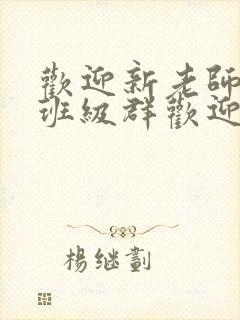 歡迎新老師
班級群歡迎
楊继劃